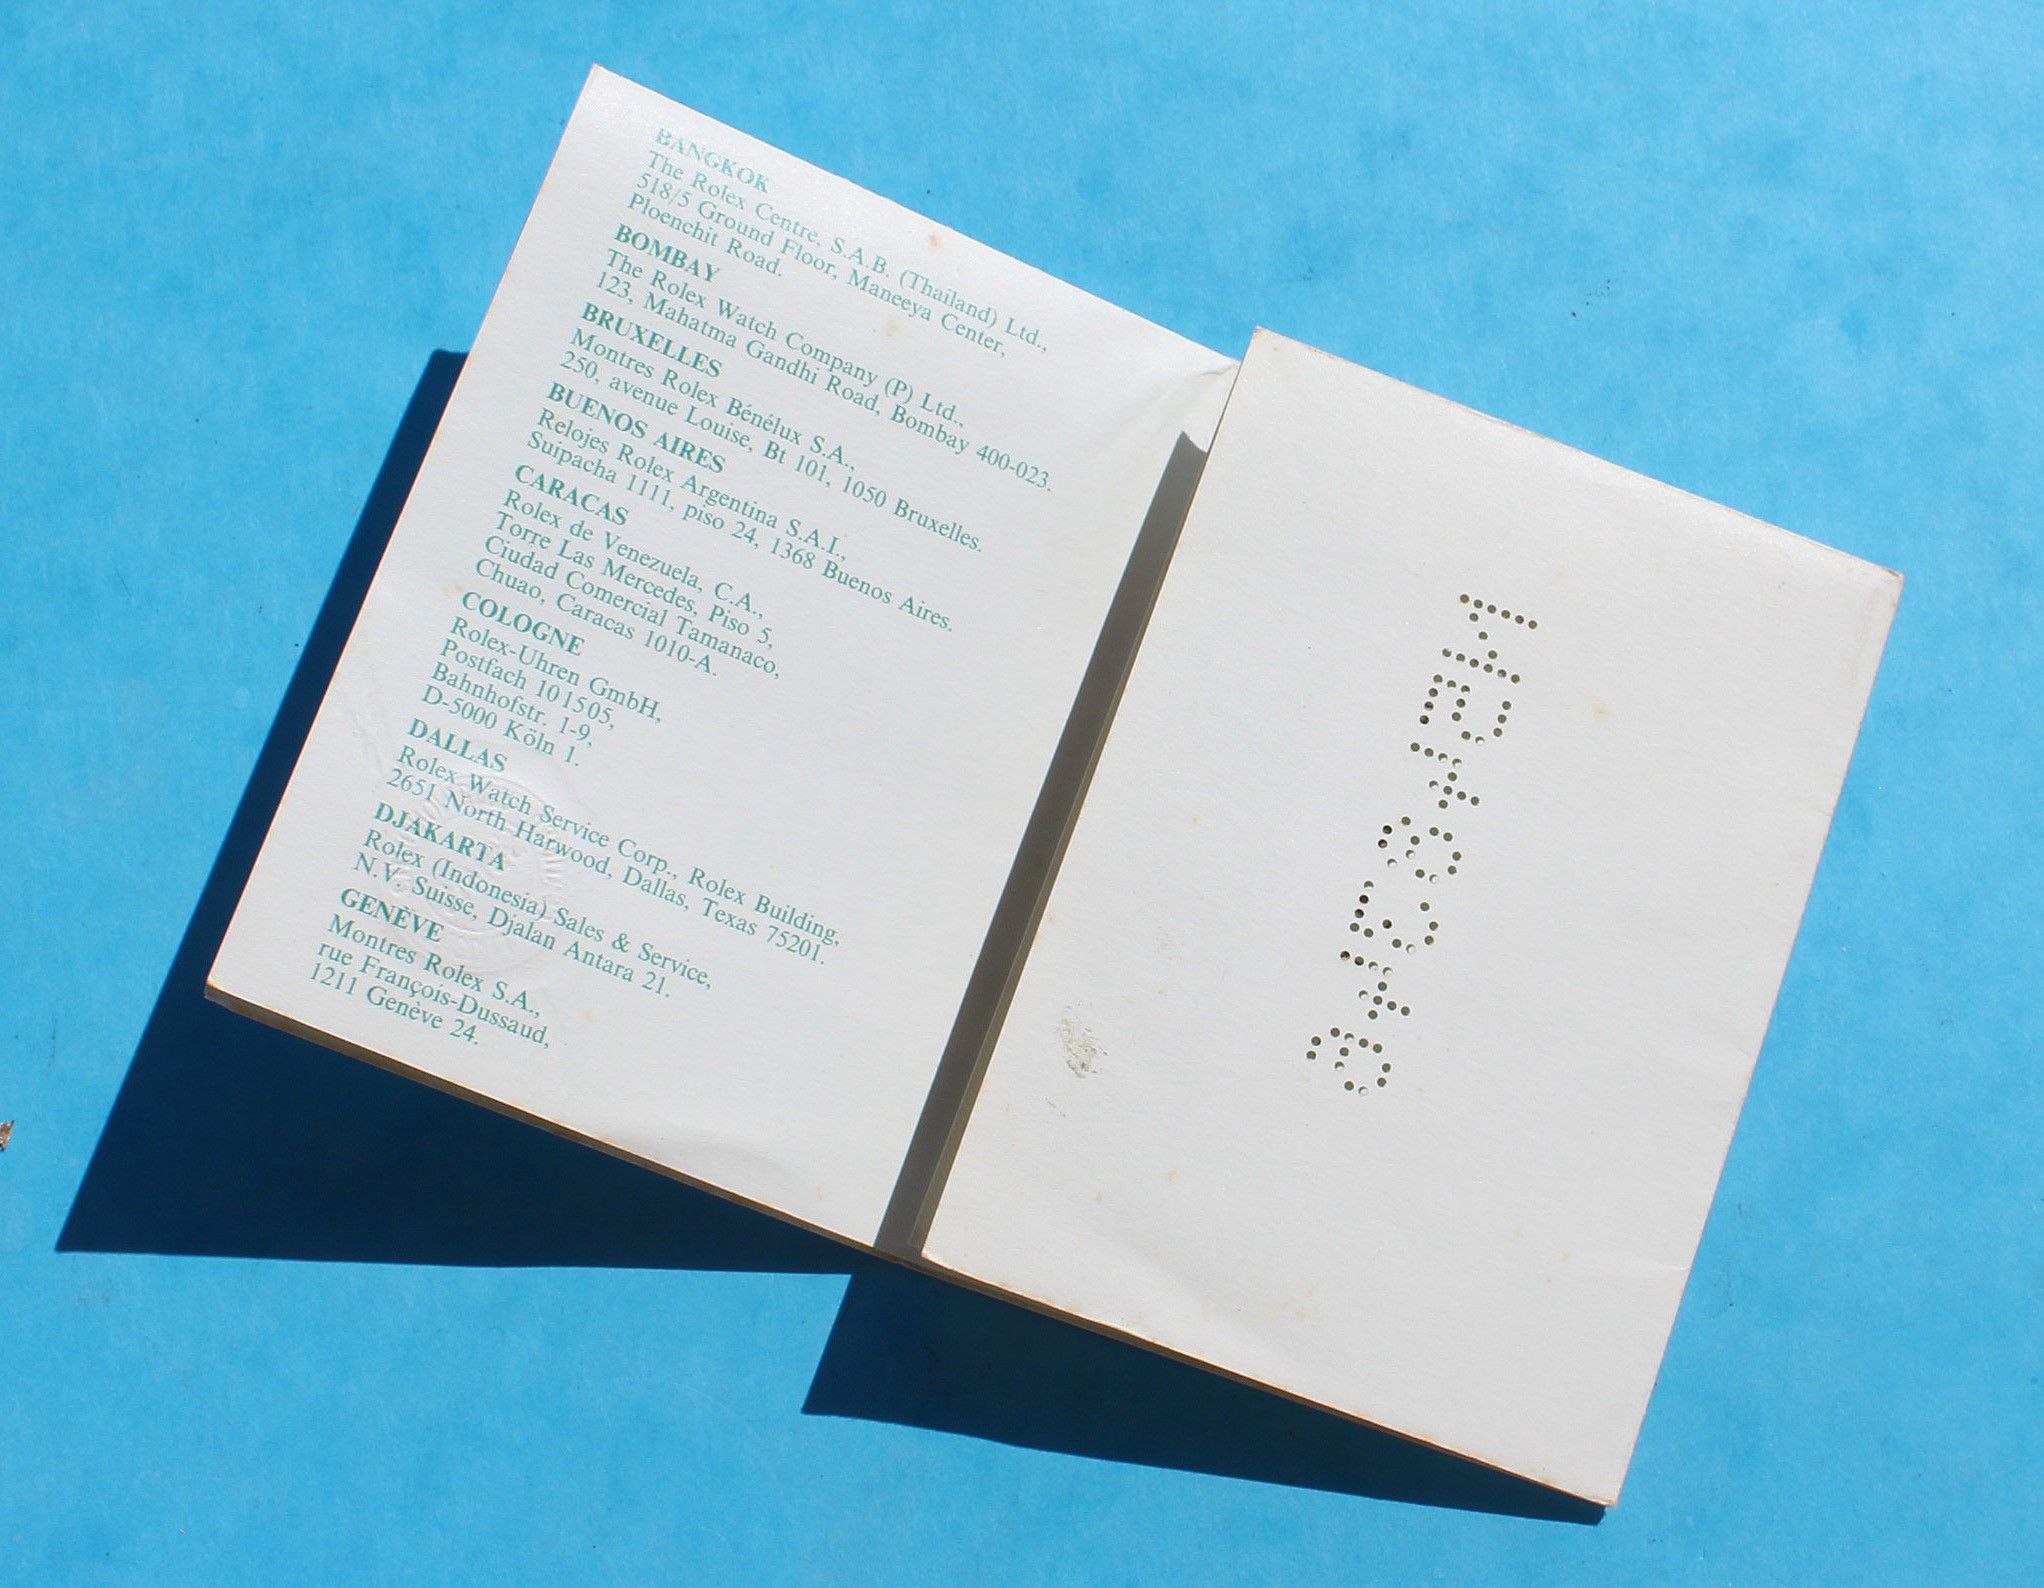 BANGKOK
The Rolex Centre, S.A.B. (Thailand) Ltd.,
518/5 Ground Floor, Maneeya Center,
Ploenchit Road.
BOMBAY
The Rolex Watch Company (P) Ltd.,
123, Mahatma Gandhi Road, Bombay 400-023.
BRUXELLES
Montres Rolex Bénélux S.A.,
250, avenue Louise, Bt 101, 1050 Bruxelles.
BUENOS AIRES
Relojes Rolex Argentina S.A.I.,
Suipacha 1111, piso 24, 1368 Buenos Aires.
CARACAS
Rolex de Venezuela, C.A.,
Torre Las Mercedes, Piso 5,
Ciudad Comercial Tamanaco,
Chuao, Caracas 1010-A.
COLOGNE
Rolex-Uhren GmbH,
Postfach 10 15 05,
Bahnhofstr. 1-9,
D-5000 Köln 1.
DALLAS
Rolex Watch Service Corp., Rolex Building,
2651 North Harwood, Dallas, Texas 75201.
DJAKARTA
Rolex (Indonesia) Sales & Service,
N.V. Suisse, Djalan Antara 21.
GENÈVE
Montres Rolex S.A.,
rue François-Dussaud,
1211 Genève 24.